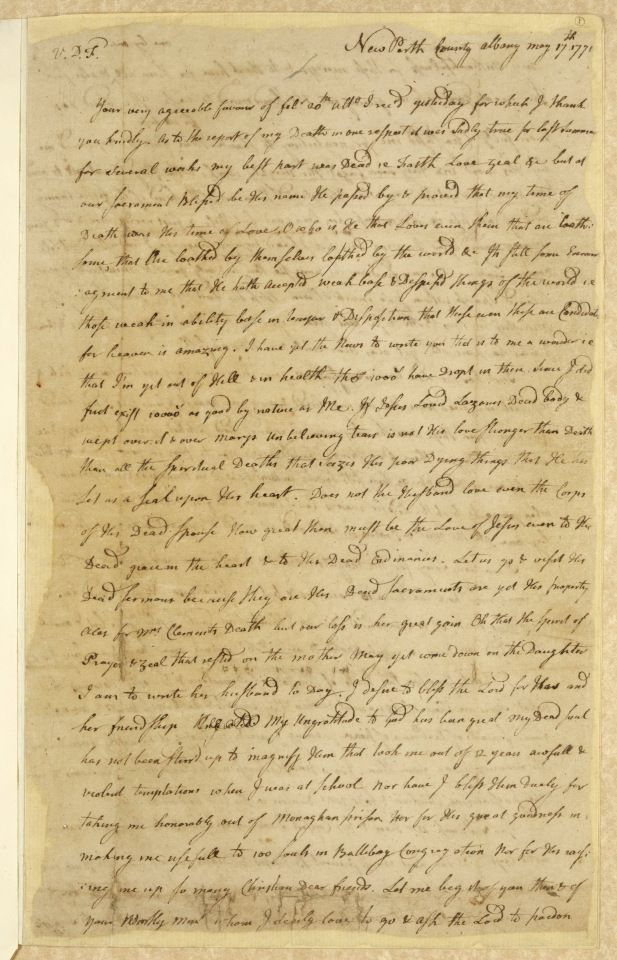 1
V. D. F.
New Perth County albany may 17th 1771
Your very agreeable favour of febr 20th ulto I recd yesterday for which I thank
you kindly. as to the report of my Death in one respect it was Sadly true for last Summer
for Several weeks my best part was Dead ie Faith Love zeal &c but at
our Sacrament Blessed be His name He passed by & proved that my time of
Death was His time of Love. O who is He that Loves even them that are loath:
some, that are loathed by themselves loathed by the world &c Its still some Encour
:agment to me that He hath accepted weak base & Despised things of the world ie
those weak in ability base in & Disposition that those even those are Candidates
for heaven is amazing. I have yet the News to write you that is to me a wonder ie
that I'm yet out of Hell & in health tho 1000s have Dropt in there Since I did
first exist 10000s as good by nature as Me. If Jesus Loved Lazarus Dead Body &
wept over it & over marys unbelieving tears is not His love Stronger than Death
than all the Spiritual Deaths that Seizes His poor Dying things that He has
Set as a Seal upon His heart. Does not the Husband love even the Corps
of His Dead Spouse How great then must be the Love of Jesus even to His
Dead grace in the heart & to His Dead ordinances. Let us go & visit His
Dead Sermons because they are His Dead Sacraments are yet His property
alas for Mrs Clements Death but our loss is her great gain Oh that the Spirit of
Prayer & zeal that rested on the mother May yet come down on the Daughter
I am to write her husband to Day. I desire to bless the Lord for and
her friendship My Ungratitude to God has been great my Dead Soul
has not been Stirrd up to magnify Him that took me out of 2 years awfull &
violent temptations when I was at School Nor have I blest Him Duely for
taking me honorably out of Monaghan prison Nor for His great goodness in
making me usefull to 100 Souls in Ballebay Congregation Nor for His rais:
:ing me up so many Christian Dear friends. Let me beg it of you then & of
your Worthy whom I dearly love to go & ask the Lord to pardon